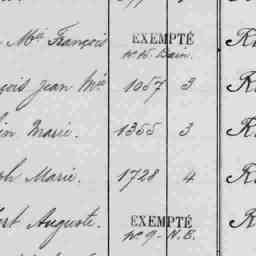 Mie François EXEMPTÉ R
No 15. Bain.
çois Jean Mie 1057 3 R
lin Marie. 1355 3 R
ph Marie. 1728 4 R
ert Auguste. EXEMPTÉ R
No 9 - N.E.